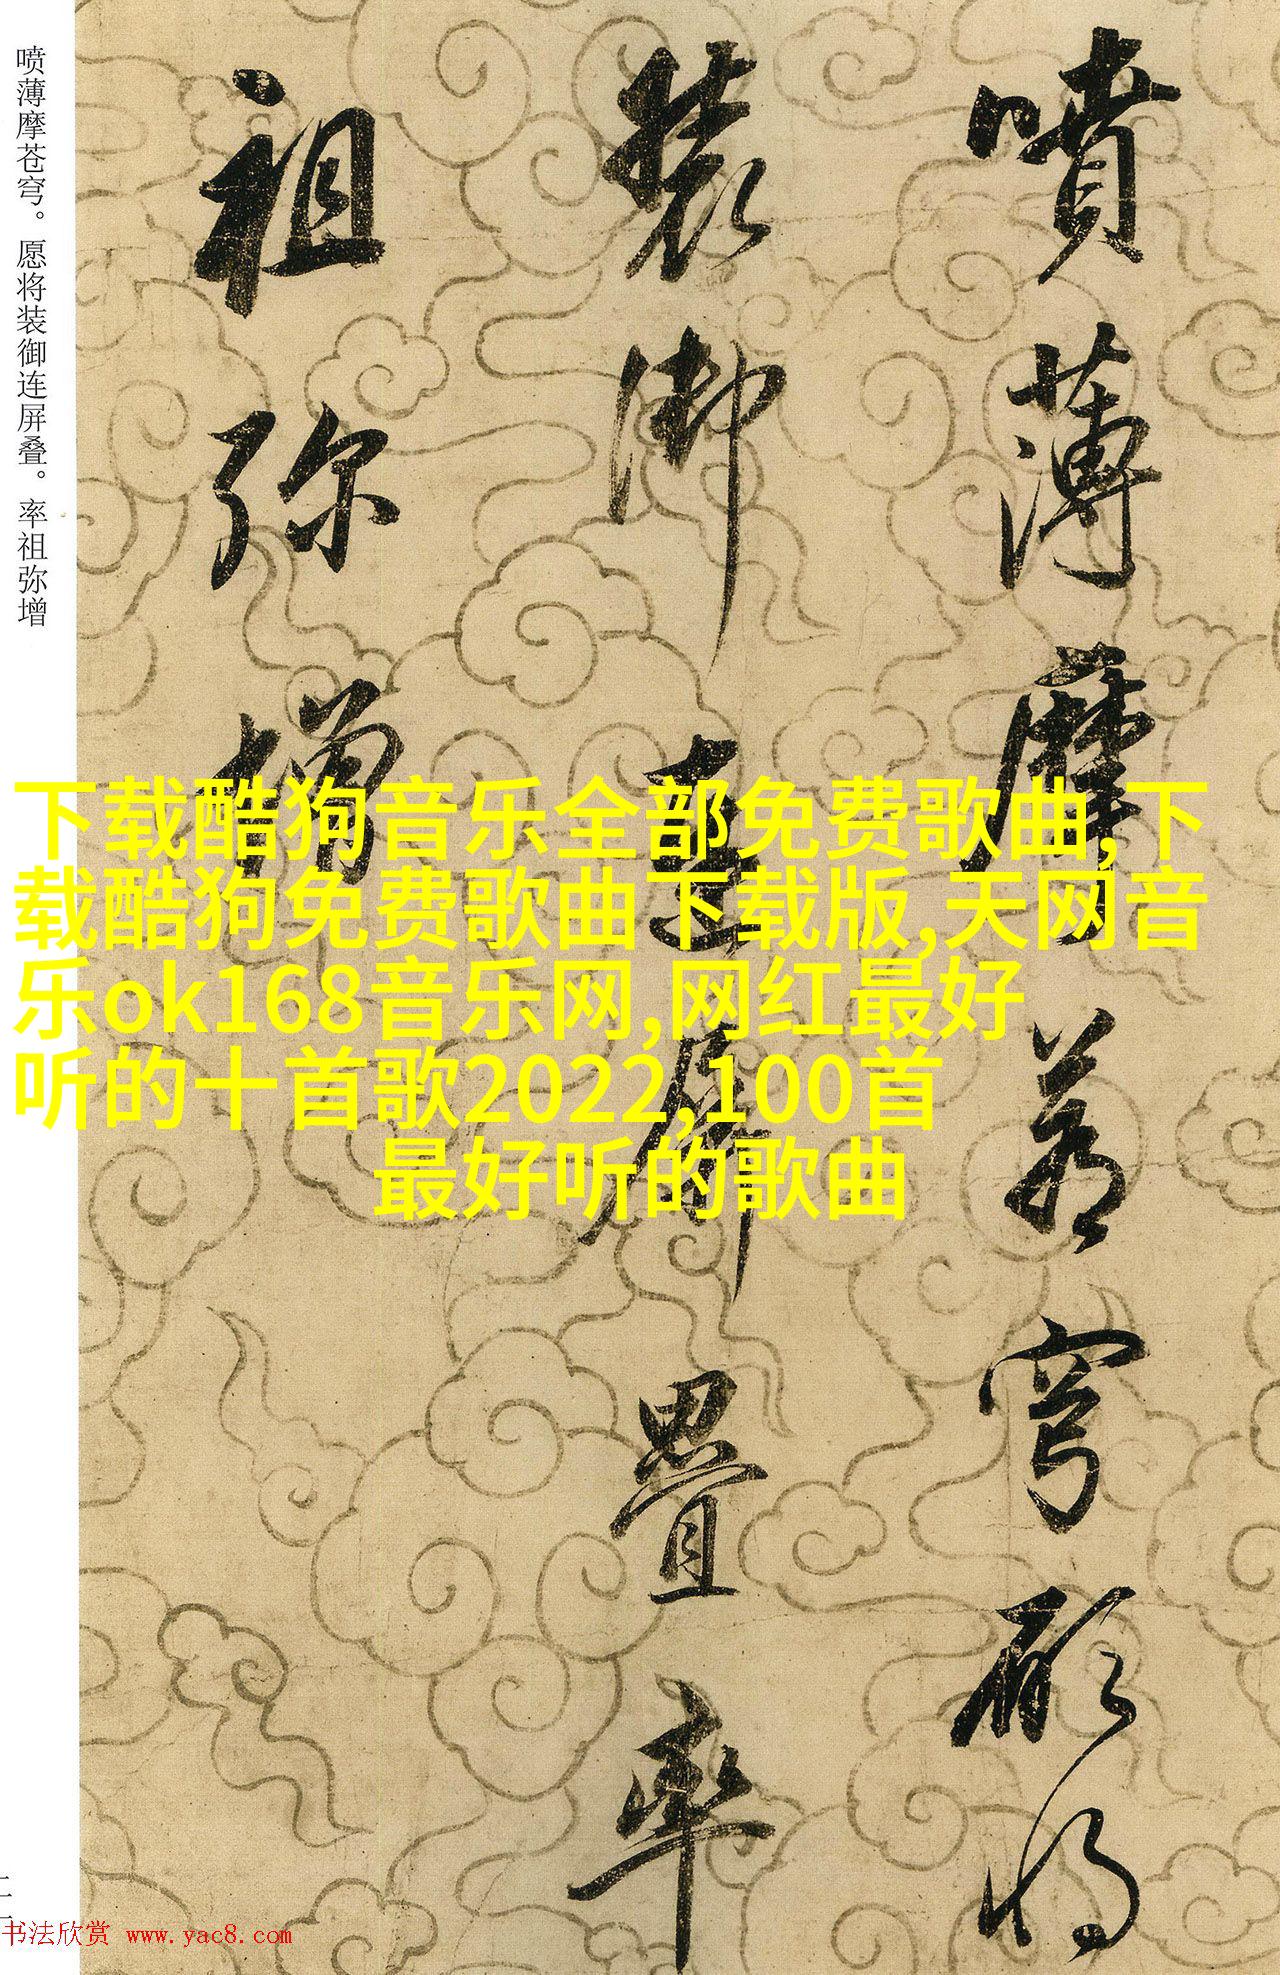 噴薄摩蒼穹願將
裝御連屏疊率
祖弥增
喷薄摩苍穹。愿将装御连屏叠。率祖弥增
下载酷狗音乐全部免费歌曲,下
载酷狗免费歌曲下载版,天网音
乐ok168音乐网,网红最好
听的十首歌2022,100首
最好听的歌曲
书法欣赏 www.yac8.com